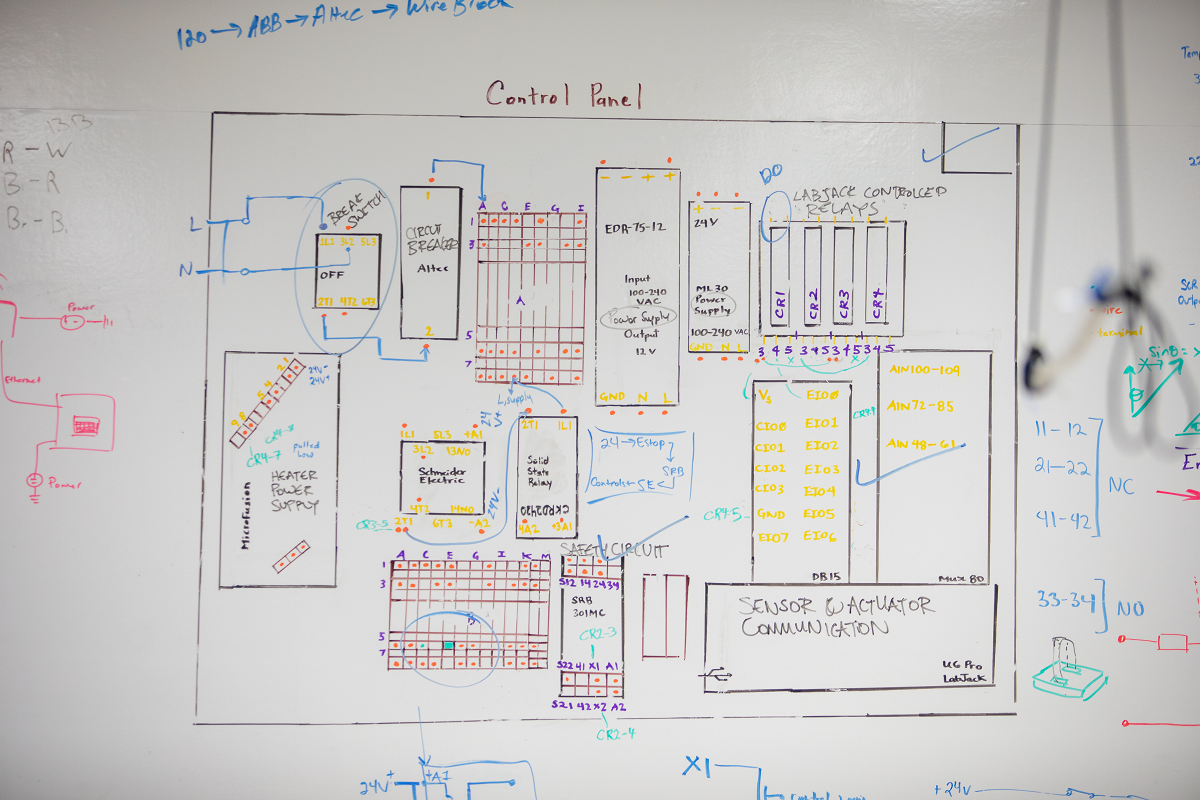 120 → ABB → Altec → Wire Block
Control Panel
BB
R - W
B - R
B. - B.
L
N
BREAK SWITCH
1L1 3L2 5L3
OFF
2T1 4T2 6T3
1
CIRCUIT
BREAKER
Altec
2
A C E G I
1
3
A
5
7
L, supply
- - + +
EDR-75-12
Input
100-240
VAC
Power Supply
Output
12 V
GND N L
+ - -
24V
ML30
Power
Supply
100-240 VAC
GND N L
DO
LABJACK CONTROLLED
RELAYS
CR1 CR2 CR3 CR4
3 4 5 3 4 5 3 4 5 3 4 5
Power
Ethernet
Power
1
2
24V-
24V+
5 4
9 8
CR4-8
CR4-7
pulled
low
HEATER
POWER
SUPPLY
MicroFusion
1L1 5L3 +A1
3L2 13NO
Schneider
Electric
4T2 14NO
2T1 6T3 -A2
CR3-5
24V+
24V-
2T1 1L1
Solid
State
Relay
CKRD2420
4A2 +3A1
24 → Estop
SRB
Controls ← SE
Vs EIO0
CIO0 EIO1
CIO1 EIO2
CIO2 EIO3
CIO3 EIO4
GND EIO5
EIO7 EIO6
DB15
CR4-5
AIN100-109
AIN72-85
AIN48-61
Mux 80
A C E G I K M
1
3
B
5
7
SAFETY CIRCUIT
S12 14 24 34
SRB
301MC
CR2-3
S22 41 X1 A1
S21 42 X2 A2
CR2-4
SENSOR & ACTUATOR
COMMUNICATION
U6 Pro
LabJack
Temp
SCR
Outpu
terminal
Sin B =
11-12
21-22
41-42
NC
33-34
NO
24V+
+A1
X1
+24V